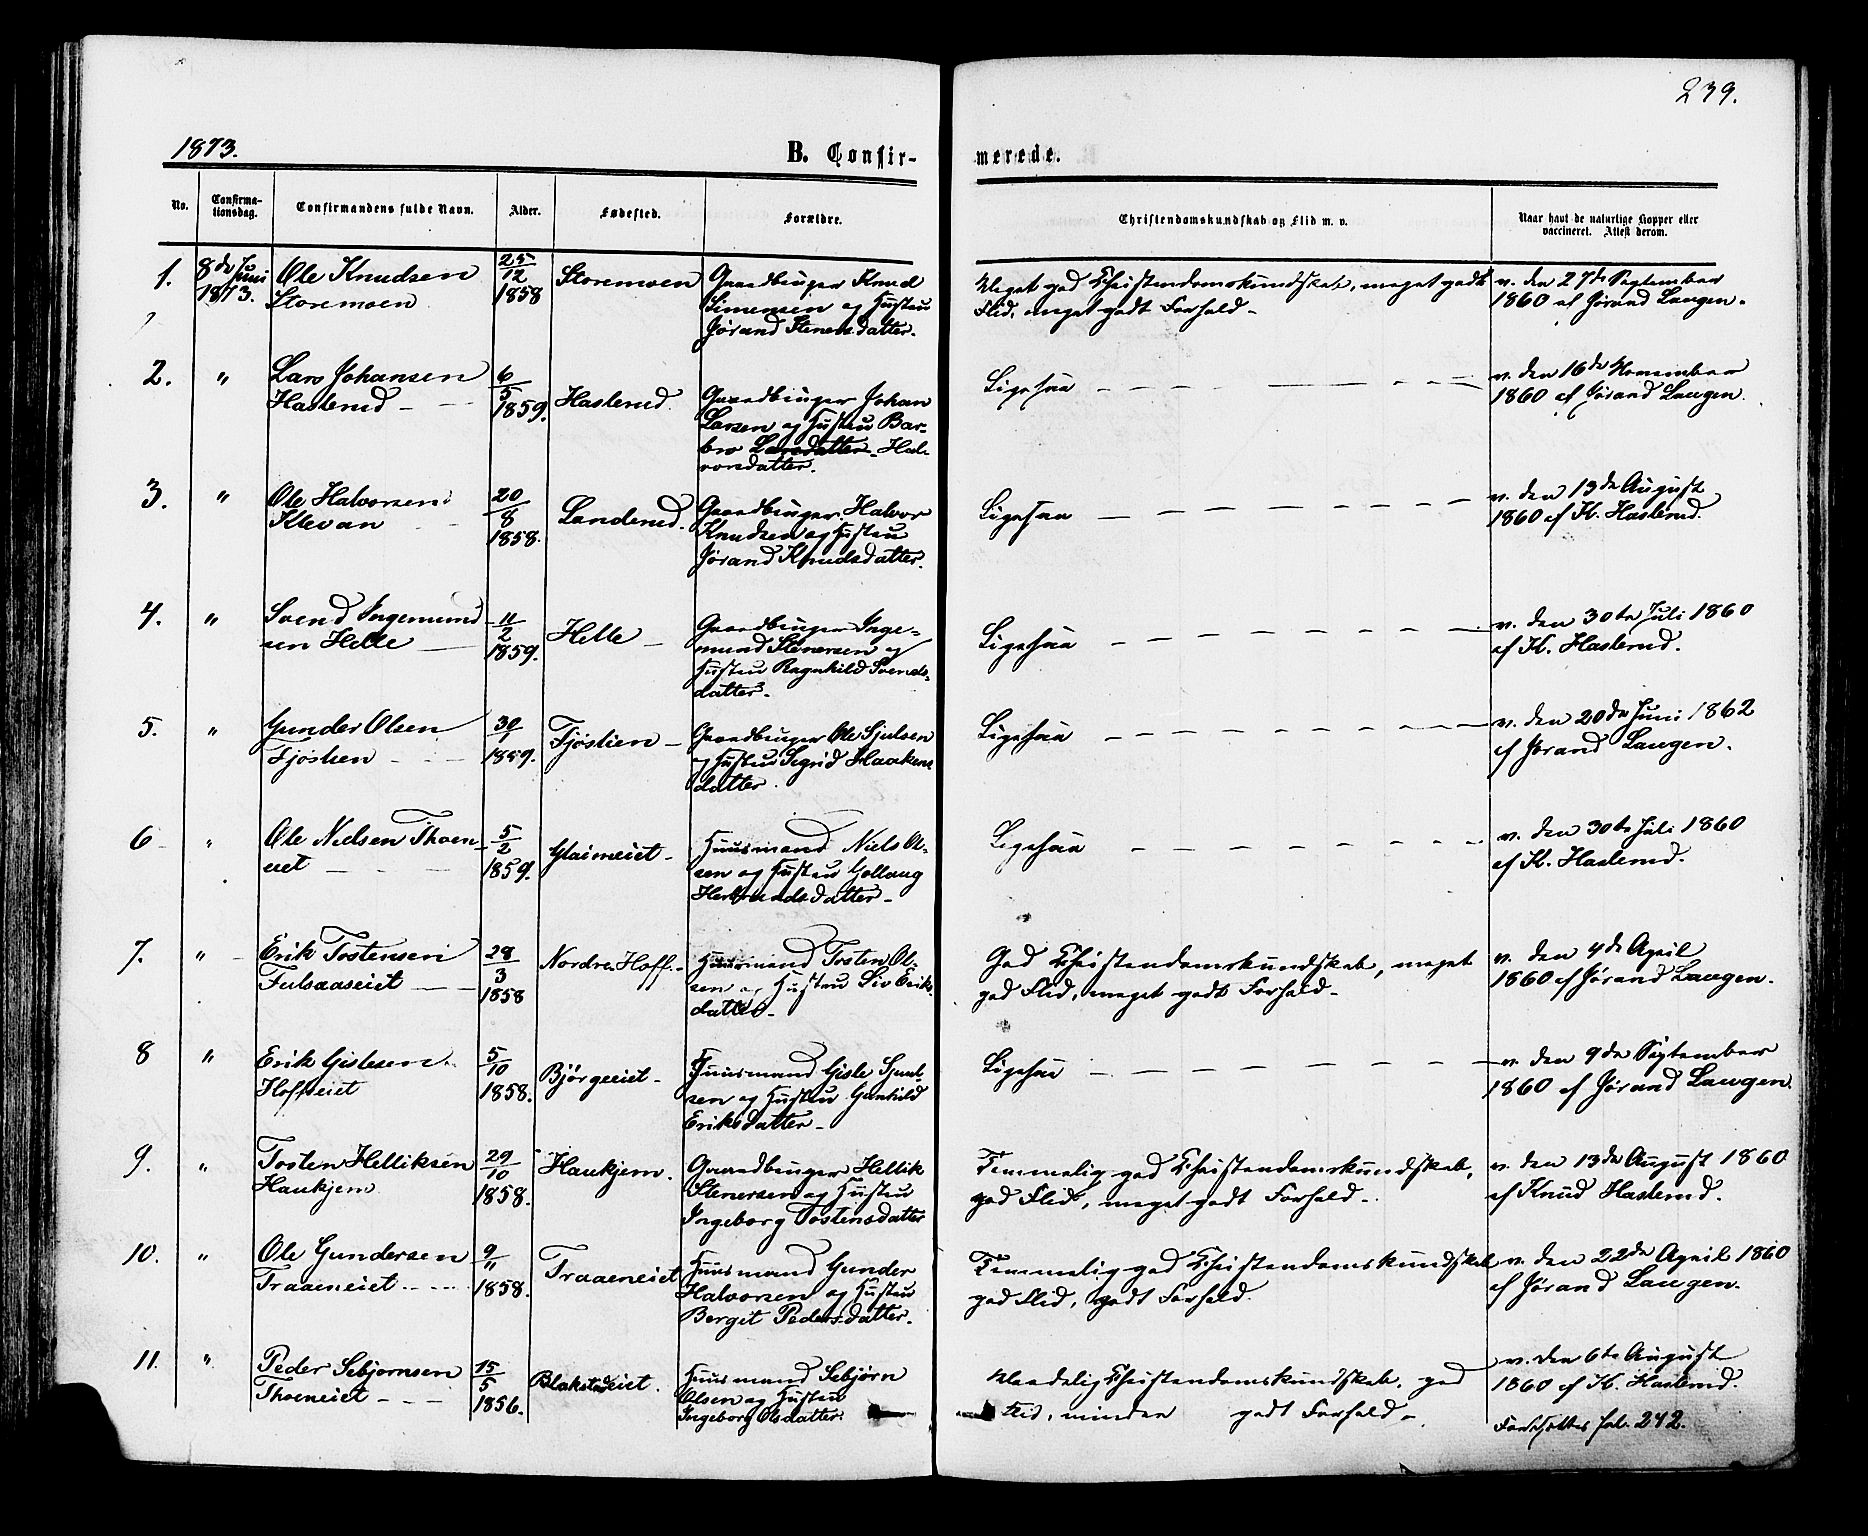 239.
1873.
B. Confir-
merede.
No.
Confirma-
tionsdag.
Confirmandens fulde Navn.
Alder.
Fødested.
Forældre.
Christendomskundskab og Flid m. v.
Naar havt de naturlige Kopper eller
vaccineret. Attest derom.
1.
8de Juni
1873.
Ole Knudsen
Storemoen
25/12
1858
Storemoen
Gaardbruger Knud
Simensen og Hustru
Jørand Stenersdatter.
Meget god Christendomskundskab, meget godt
Flid, meget godt Forhold -
v. den 27de September
1860 af Jørand Laugen.
2.
"
Lars Johansen
Haslerud
6/5
1859.
Haslerud.
Gaardbruger Johan
Larsen og Hustru Bar-
bro Larsdatter Hal-
vorsdatter.
Ligesaa
v. den 16de November
1860 af Jørand Laugen.
3.
"
Ole Halvorsen
Klevan
20/8
1858.
Landerud.
Gaardbruger Halvor
Knudsen og Hustru
Jørand Knudsdatter.
Ligesaa
v. den 13de August
1860 af K. Haslerud.
4.
"
Svend Ingemund
sen Helle
11/2
1859.
Helle
Gaardbruger Inge-
mund Stenersen og
Hustru Ragnhild Svends-
datter.
Ligesaa
v. den 30te Juli 1860
af K. Haslerud.
5.
"
Gunder Olsen
Fjøslien
30/1
1859.
Fjøslien
Gaardbruger Ole Sjulsen
og Hustru Sigrid Haakens
datter.
Ligesaa
v. den 20de Juni 1862
af Jørand Laugen.
6
"
Ole Nielsen Thoen
eiet
5/2
1859.
Glaimeiet
Huusmand Niels Ol-
sen og Hustru Gollaug
Herbrandsdatter
Ligesaa
v. den 30te Juli 1860
af K. Haslerud.
7.
"
Erik Tostensen
Fulsaaseiet
28/3
1858
Nordre Hoff.
Huusmand Tosten Ol-
sen og Hustru Siv Erik-
datter
God Christendomskundskab, meget
god Flid, meget godt Forhold
v. den 4de April
1860 af Jørand Laugen.
8
"
Erik Gislesen
Hoffseiet
5/10
1858.
Bjørgeeiet
Huusmand Gisle Sjul-
sen og Hustru Gunhild
Eriksdatter
Ligesaa
v. den 9de September
1860 af Jørand Laugen.
9.
"
Tosten Helliksen
Haukjem
29/10
1858.
Haukjem.
Gaardbruger Hellik
Stenersen og Hustru
Ingeborg Tostensdatter
Temmelig god Christendomskundskab,
god Flid, meget godt Forhold
v. den 13de August 1860
af Knud Haslerud.
10.
"
Ole Gundersen
Traaeneiet
9/11
1858.
Traaeneiet
Huusmand Gunder
Halvorsen og Hustru
Bergit Pedersdatter.
Temmelig god Christendomskundskab
god Flid, godt Forhold.
v. den 22de April 1860
af Jørand Laugen.
11.
"
Peder Sebjørnsen
Thoeneiet
15/5
1856.
Blakstadeiet.
Huusmand Sebjørn
Olsen og Hustru
Ingeborg Olsdatter.
Maadelig Christendomskundskab, god
Flid, minder godt Forhold
v. den 6te August
1860 af K. Haslerud.
Fortsættes fol. 242.